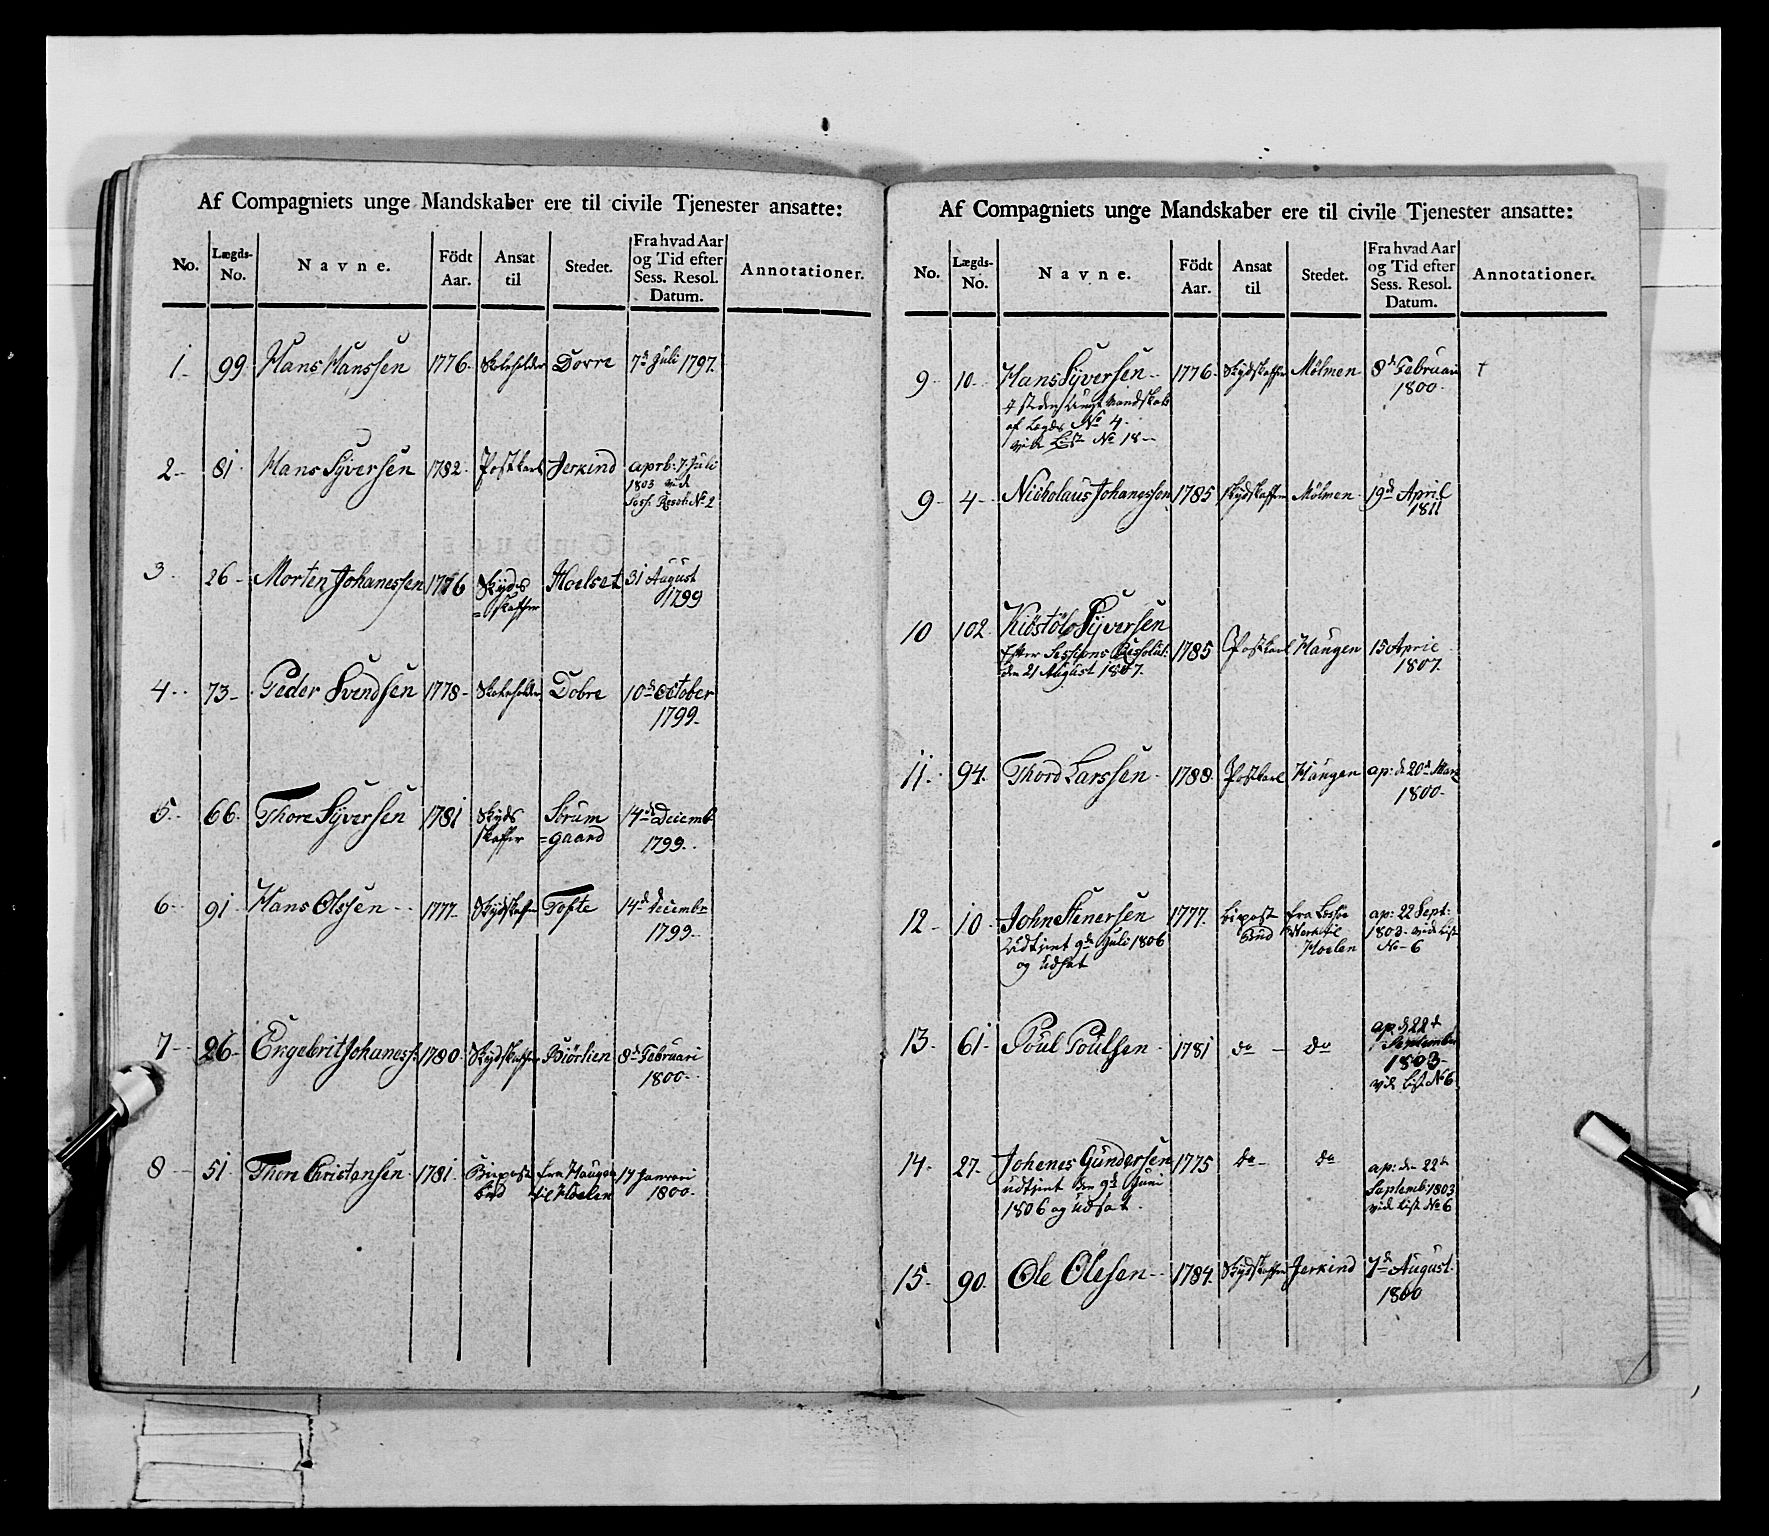 Af Compagniets unge Mandskaber ere til civile Tjenester ansatte:
No. Lægds-No. Navne. Födt Aar. Ansat til Stedet. Fra hvad Aar og Tid efter Sess. Resol. Datum. Annotationer.
1 99 Hans Hanssen 1776 Skoleholder Dovre 7de Juli 1797.
2 81 Hans Syversen 1782 Postkarl Jerkind aprb: 7 Juli
1803 vid
Sess. Resol: No 2
3 26 Morten Johanessen 1776 Skyds Hoelset 31 August
=skaffer 1799
4 73 Peder Svendsen 1778 Skoleholder Dovre 10de October
1799
5 66 Thore Syversen 1781 Skyds Strum 14de Decemb
skaffer =gaard 1799
6 91 Hans Olssen 1777 Skydskaffer Tofte 14de Decembr
1799
7 26 Engebrit Johaness: 1780 Skydskaffer Biørlien 8de Februari
1800
8 51 Thore Christensen 1781 Biepost fra Haugen 17 Januari
bud til Hoelen 1800
Af Compagniets unge Mandskaber ere til civile Tjenester ansatte:
No. Lægds-No. Navne. Födt Aar. Ansat til Stedet. Fra hvad Aar og Tid efter Sess. Resol. Datum. Annotationer.
9 10 Hans Syversen 1776 Skydskaffer Mølmen 8de Februari †
1800
af Lægds No 4
vide List No 18
9 4 Nickolaus Johanessen 1785 Skydskaffer Mølmen 19de April
1811
10 102 Kiöstöl Syversen 1785 Postkarl Haugen 15 April
Efter Sessions Resolut: 1807
den 21 August 1807
11 94 Thord Larssen 1788 Postkarl Haugen ap: d 20de Marz
1800
12 10 John Stenersen 1777 biepost fra Lessøe ap: 22 Sept:
Udtient 9de Juli 1806 Bud Værk til 1803 vide List
og udsat Hoelen No 6
13 61 Poul Poulsen 1781 do do ap: d 22de
September
1803
vide List No 6
14 27 Johenes Gundersen 1775 do do ap: den 22de
udtient den 9de Juni Septemb: 1803
1806 og udsat vide List No 6
15 90 Ole Olesen 1784 Skydskaffer Jerkind 7de August
1800